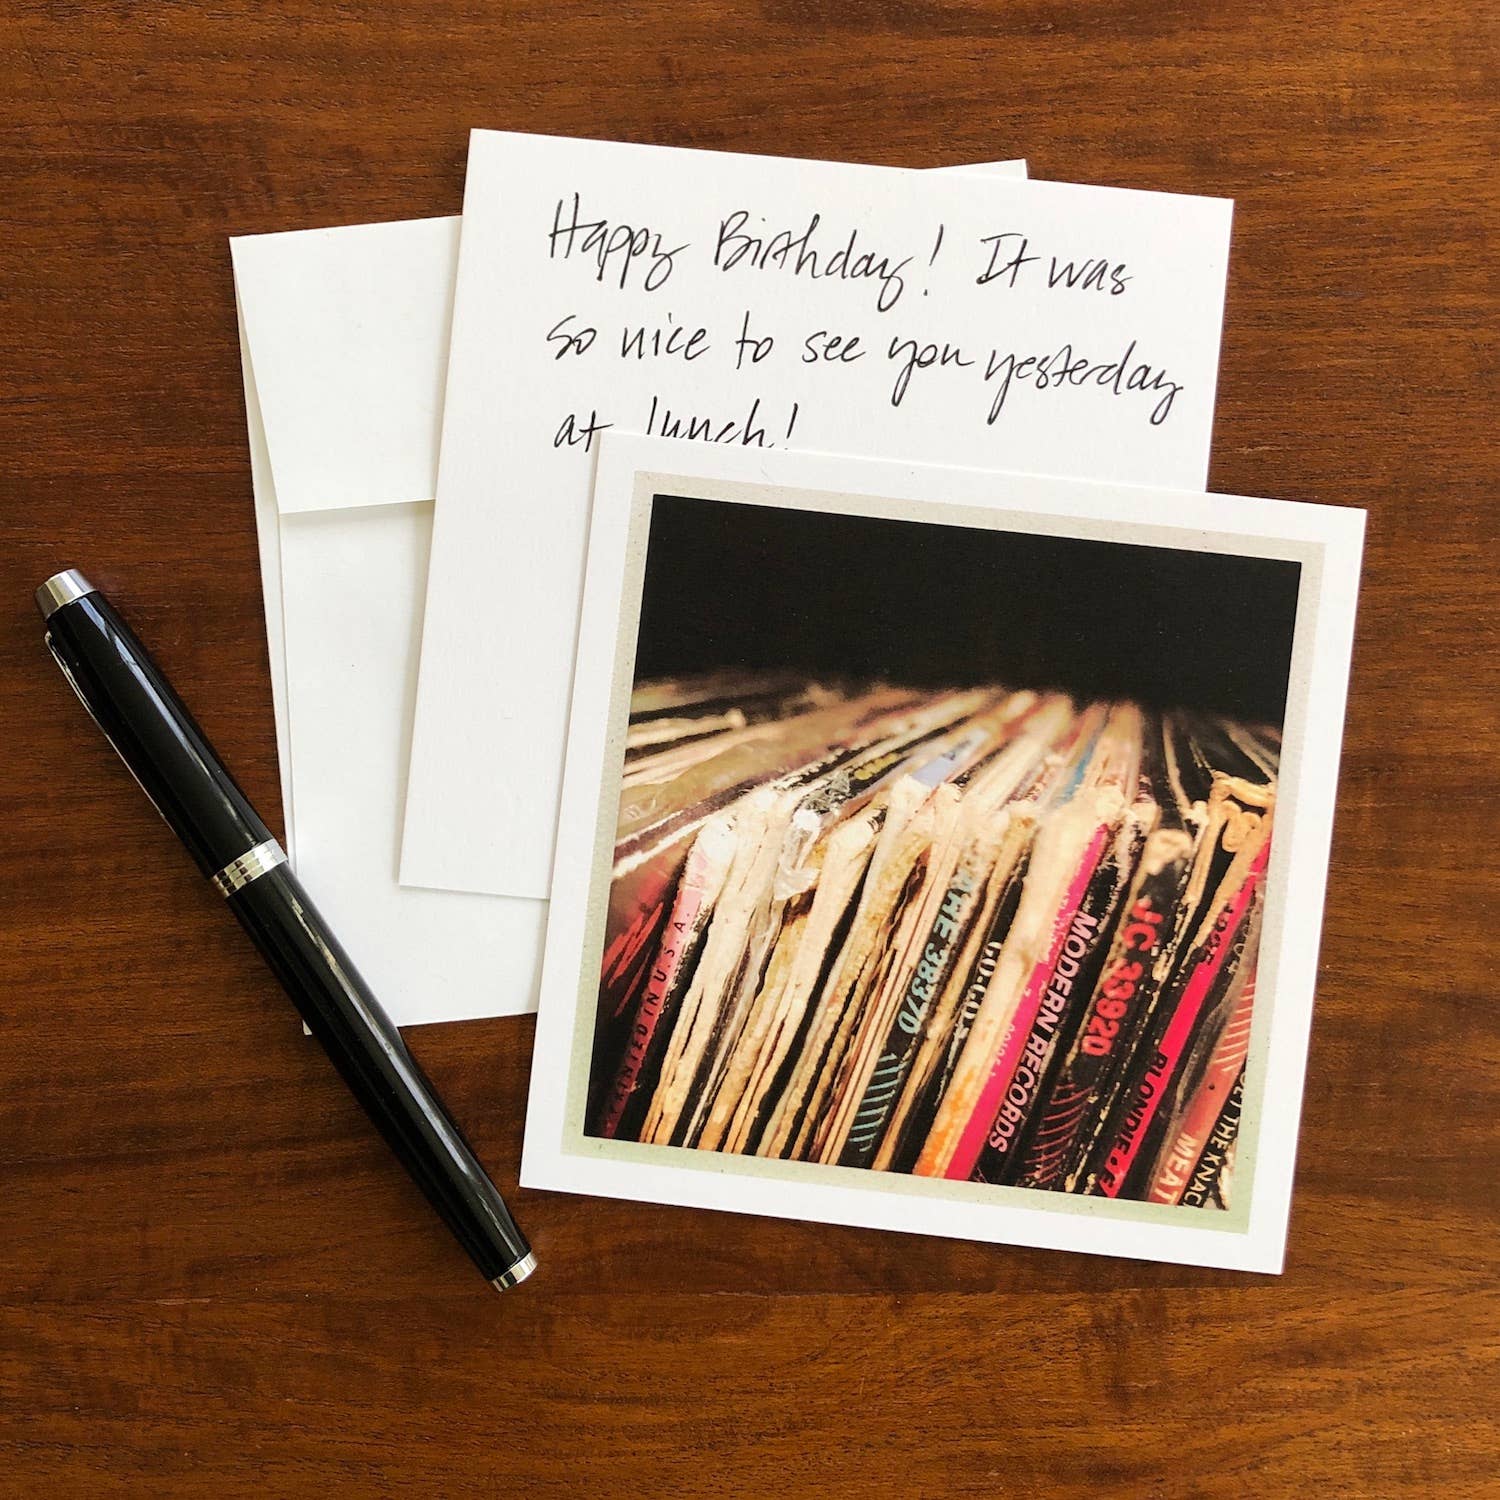 Happy Birthday! It was
so nice to see you yesterday
at lunch!
PRINTED IN U.S.A.
AHE 38370
MODERN RECORDS
JC 33920
BLONDIE
MEAT
GET THE KNAC